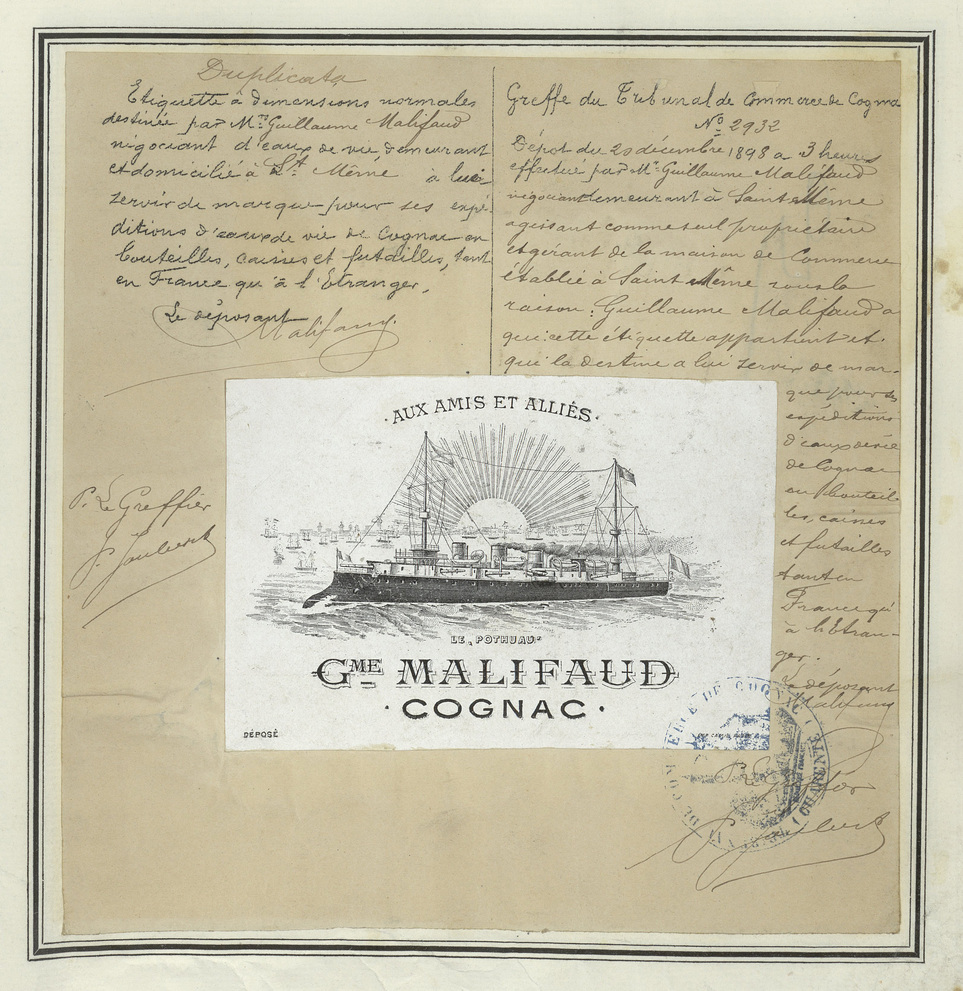 Duplicata
Etiquette à dimensions normales
destinée par Mr. Guillaume Malifaud
négociant d'eaux de vie, demeurant
et domicilié à St Même à lui
servir de marque pour ses expé-
ditions d'eaux de vie de Cognac en
bouteilles, caisses et futailles, tant
en France qu'à l'Etranger.
Le déposant
Malifaud
P. Le Greffier
Greffe du Tribunal de Commerce de Cognac
No 2932
Dépôt du 20 décembre 1898 a 3 heures
effectué par Mr. Guillaume Malifaud
négociant demeurant à Saint Même
agissant comme seul propriétaire
et gérant de la maison de Commerce
établie à Saint Même sous la
raison: Guillaume Malifaud a
qui cette étiquette appartient et
qui la destine a lui servir de mar-
que pour ses
expéditions
d'eaux de vie
de Cognac
en bouteil-
les, caisses
et futailles
tant en
France qu'
à l'Etran-
ger.
Le déposant
Malifaud
·AUX AMIS ET ALLIÉS·
LE "POTHUAU"
GME MALIFAUD
·COGNAC·
DÉPOSÉ
DE COGNAC
(CHARENTE)